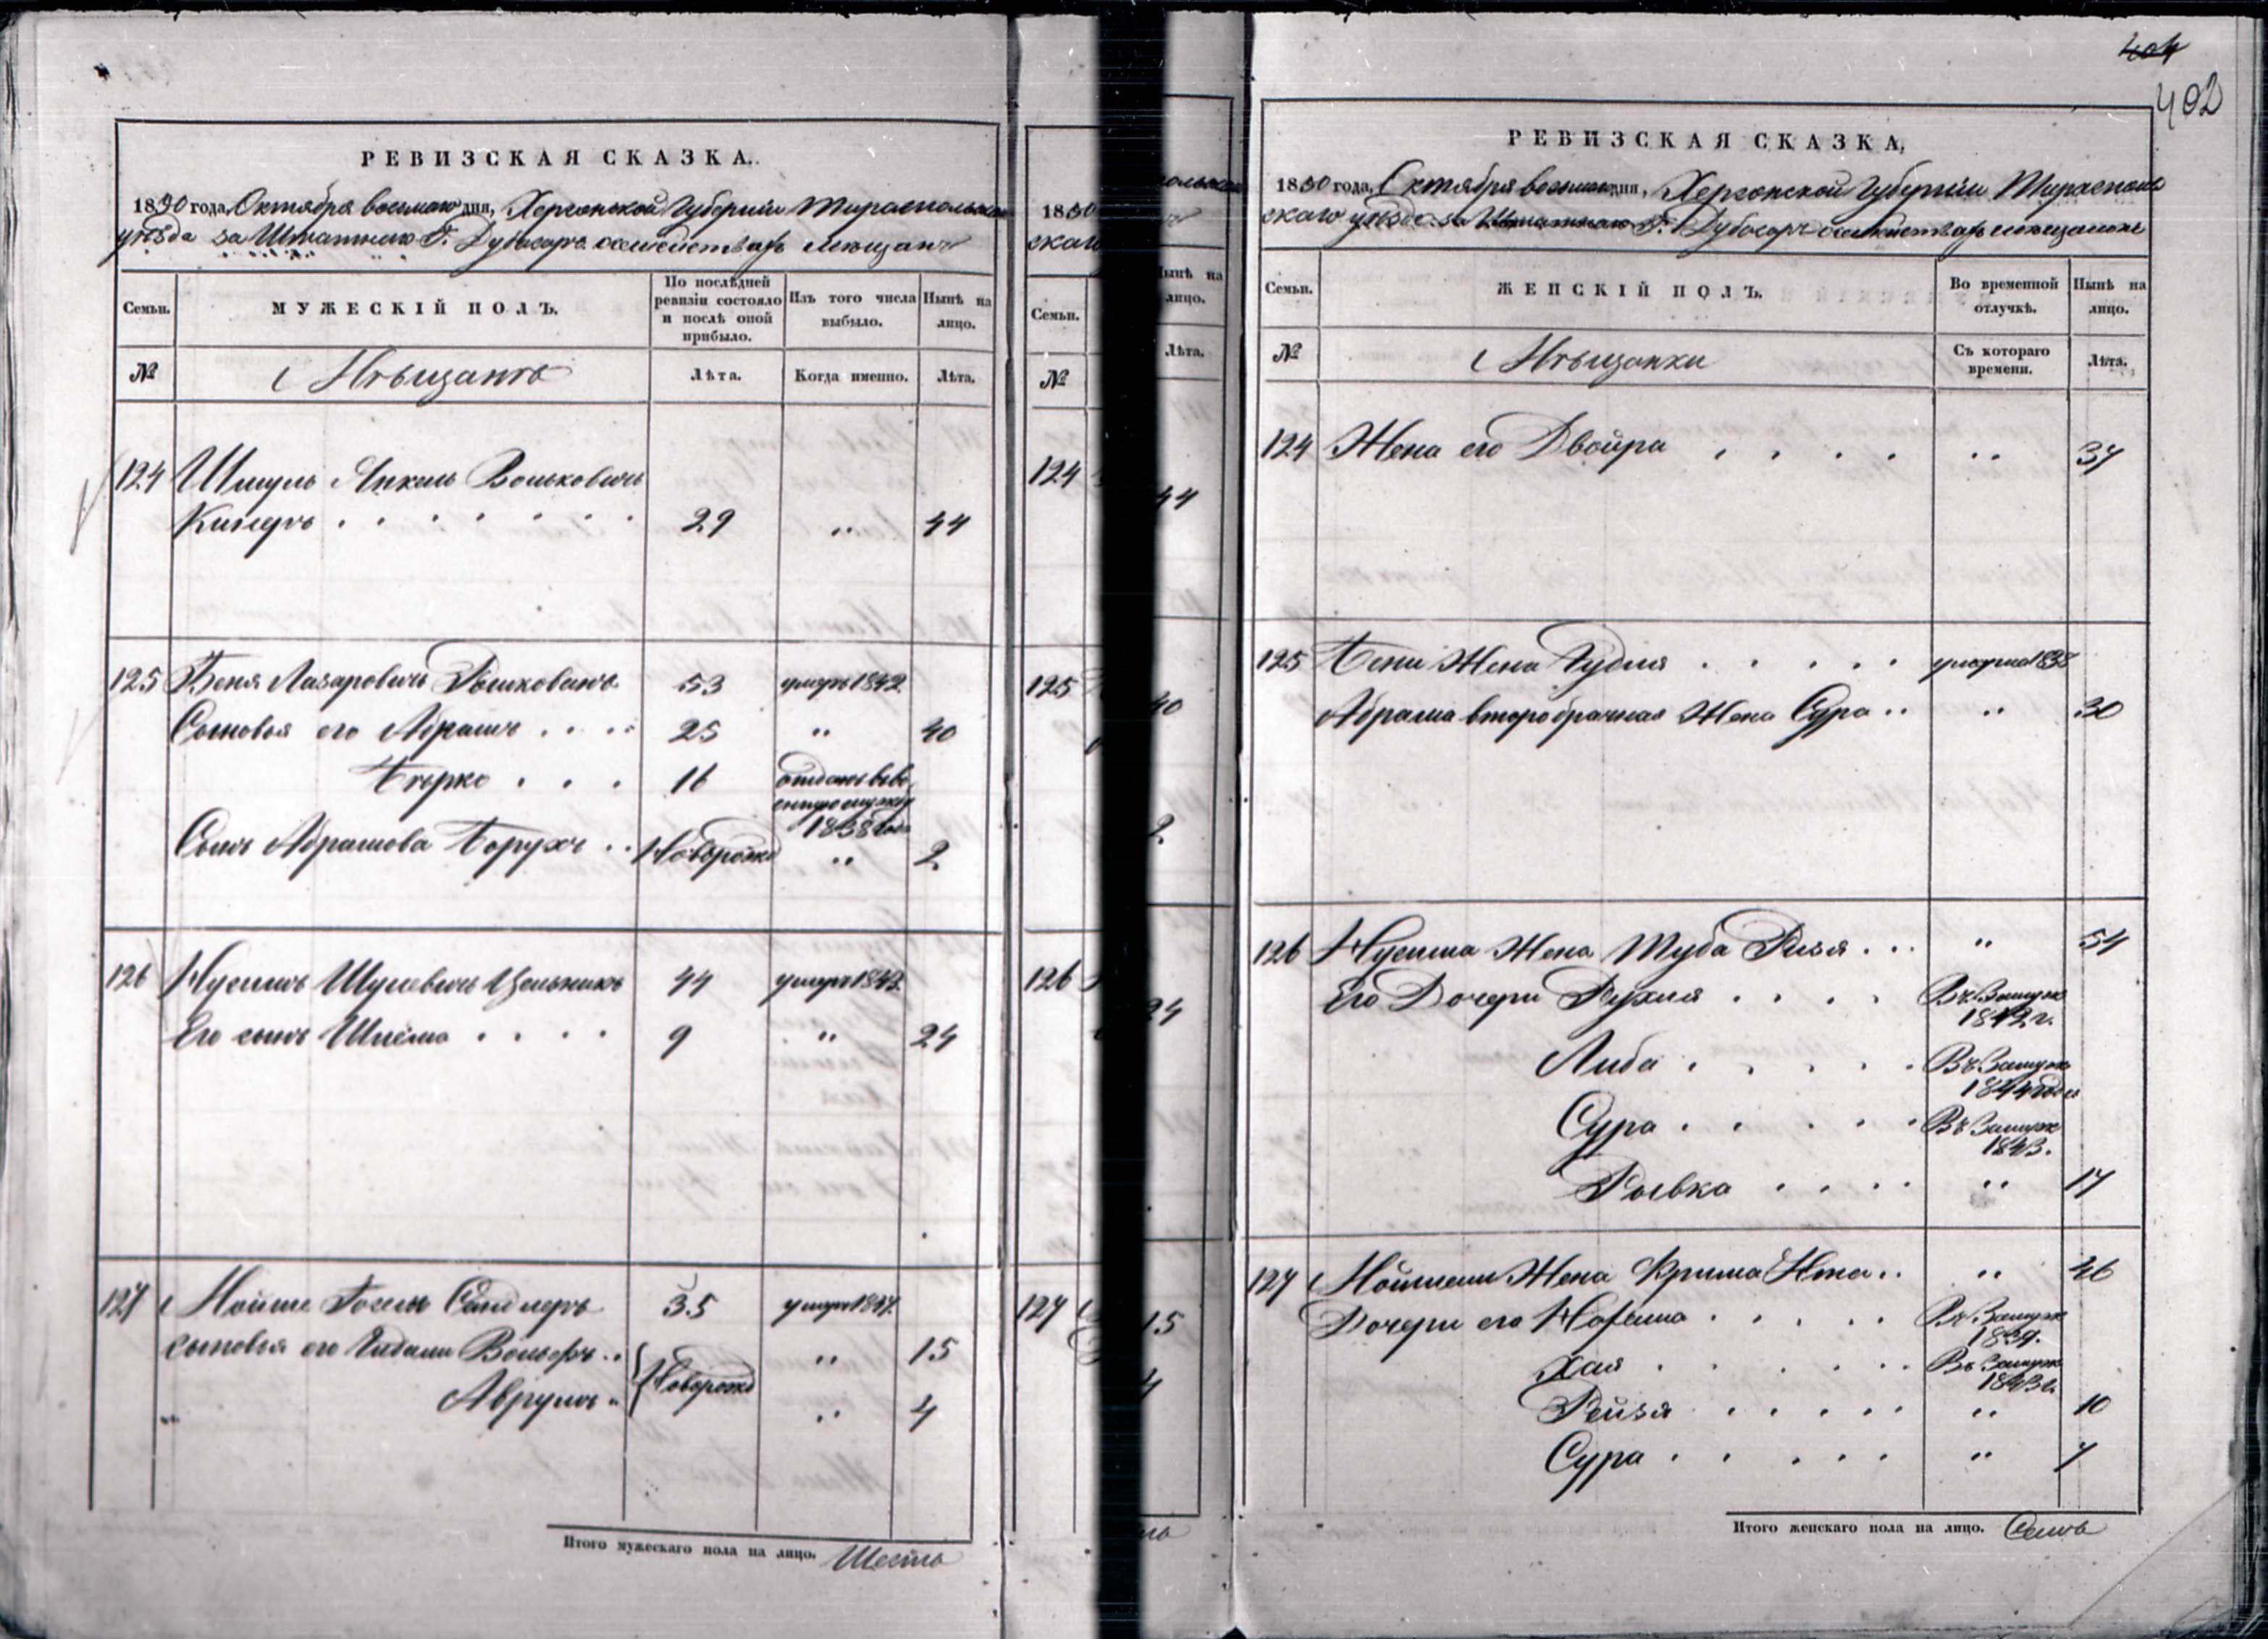 РЕВИЗСКАЯ СКАЗКА.
1850 года, Октября восьмого дня, Херсонской Губернии Тираспольскаго
уѣзда заштатнаго Г. Дубосаръ о семействахъ мещанъ
Семьи.
МУЖЕСКІЙ ПОЛЪ.
По послѣдней ревизіи состояло и послѣ оной прибыло.
Изъ того числа выбыло.
Нынѣ на лицо.
№
Мѣщанъ
Лѣта.
Когда именно.
Лѣта.
124 Шмуль Янкель Вольковичъ
29 „ 44
125 Беня Лазаровичъ Рышкованъ 53 умеръ 1842
Сыновья его Абрамъ 25 „ 40
Берко 16 отданъ въ военную службу 1838 года
Сынъ Абрамова Борухъ Новорожд „ 2
126 Нусимъ Шулевичъ 44 умеръ 1842
Его сынъ Шлёма 9 „ 24
127 Мойше Госель Сандлеръ 35 умеръ 1847
сыновья его Гидали Вольфъ Новорожд „ 15
„ Аврумъ „ 4
Итого мужескаго пола на лицо. Шесть
Семьи.
№
124
125
126
127
Нынѣ на лицо.
Лѣта.
44
40
2
24
15
4
404
402
РЕВИЗСКАЯ СКАЗКА,
1850 года, Октября восьмого дня, Херсонской Губерніи Тираспольскаго
уѣзда заштатнаго Г. Дубосаръ о семействахъ мещанокъ
Семьи.
ЖЕНСКІЙ ПОЛЪ.
Во временной отлучкѣ.
Нынѣ на лицо.
№
Мѣщанки
Съ котораго времени.
Лѣта.
124 Жена его Двойра „ 37
125 Бени Жена Гудля умерла 1838
Абрама второбрачная Жена Сура „ 30
126 Нусима Жена Туба Рися „ 54
Его Дочери Рухля Въ Замуж 1842 г.
Либа Въ Замуж 1844 года
Сура Въ Замуж 1843.
Ривка „ 17
127 Мойшеи Жена Крима Ита „ 46
Дочери его Въ Замуж 1839.
Хая Въ Замуж 1843 г.
Рейзя „ 10
Сура „ 7
Итого женскаго пола на лицо. Семь